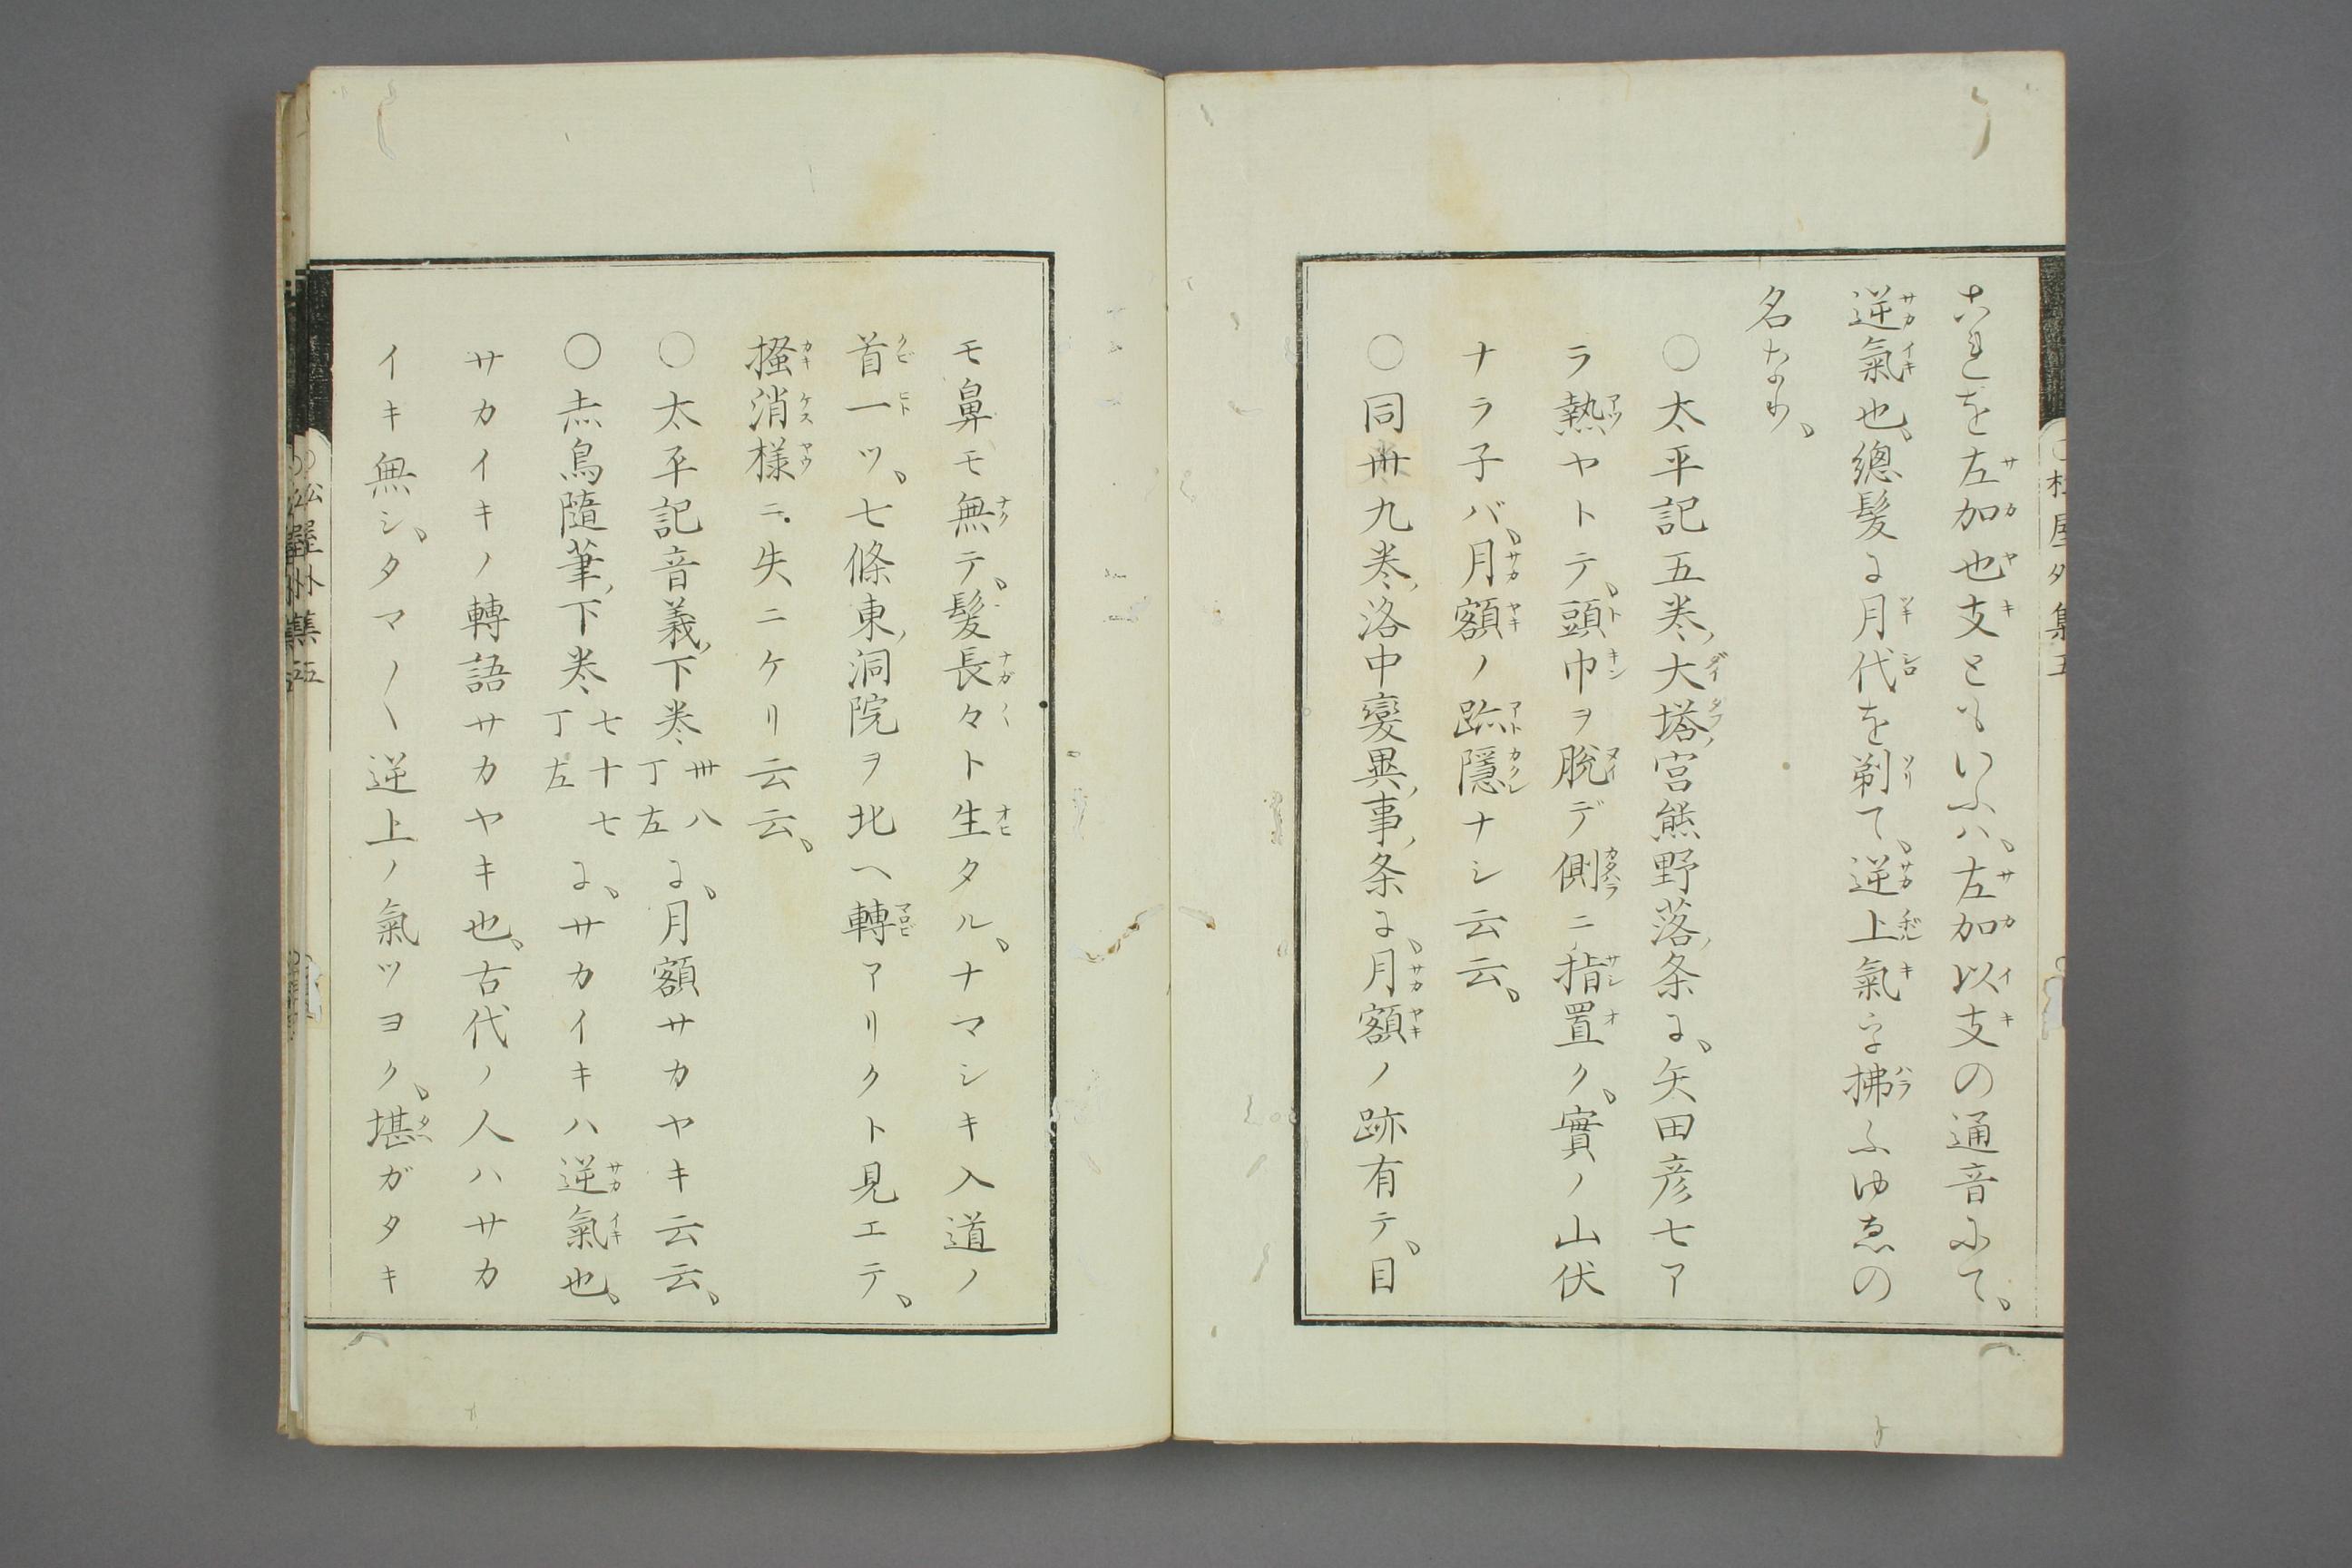 これを左加也支ともいふハ、左加以支の通音にて、
逆氣也、總髮に月代を剃て、逆上氣を拂ふゆゑの
名なり、
〇太平記五巻、大塔宮熊野落条に、矢田彦七ア
ラ熱ヤトテ、頭巾ヲ脱デ側ニ指置ク、實ノ山伏
ナラ子バ、月額ノ跡隱ナシ云云、
〇同卅九巻、洛中變異事条に、月額ノ跡有テ、目
モ鼻モ無テ、髪長々ト生タル、ナマシキ入道ノ
首一ツ、七條東洞院ヲ北ヘ轉アリクト見エテ、
掻消様ニ失ニケリ云云、
〇太平記音義、下巻卅八丁左に、月額サカヤキ云云、
〇烝鳥隨筆、下巻七十七丁左に、サカイキハ逆氣也、
サカイキノ轉語サカヤキ也、古代ノ人ハサカ
イキ無シ、タマ〳〵逆上ノ氣ツヨク、堪ガタキ